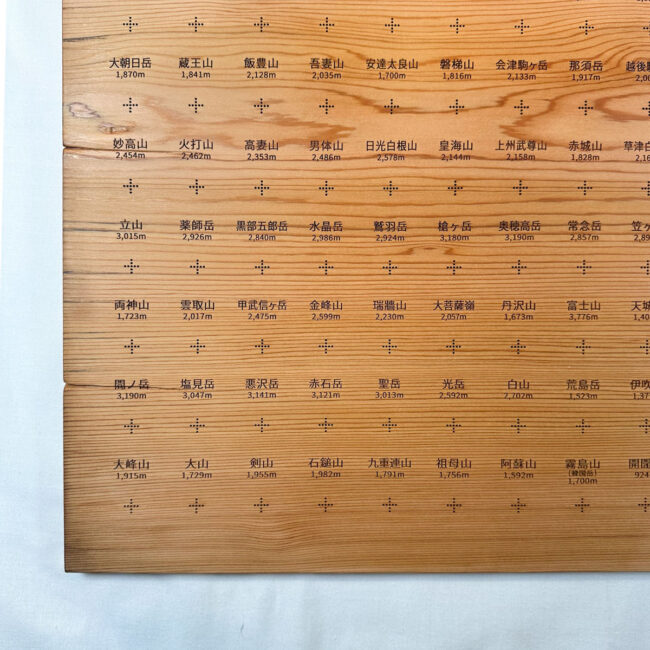 大朝日岳 蔵王山 飯豊山 吾妻山 安達太良山 磐梯山 会津駒ヶ岳 那須岳 越後
1,870m 1,841m 2,128m 2,035m 1,700m 1,816m 2,133m 1,917m 2,0
妙高山 火打山 高妻山 男体山 日光白根山 皇海山 上州武尊山 赤城山 草津白
2,454m 2,462m 2,353m 2,486m 2,578m 2,144m 2,158m 1,828m 2,16
立山 薬師岳 黒部五郎岳 水晶岳 鷲羽岳 槍ヶ岳 奥穂高岳 常念岳 笠ヶ
3,015m 2,926m 2,840m 2,986m 2,924m 3,180m 3,190m 2,857m 2,89
両神山 雲取山 甲武信ヶ岳 金峰山 瑞牆山 大菩薩嶺 丹沢山 富士山 天城
1,723m 2,017m 2,475m 2,599m 2,230m 2,057m 1,673m 3,776m 1,40
間ノ岳 塩見岳 悪沢岳 赤石岳 聖岳 光岳 白山 荒島岳 伊吹
3,190m 3,047m 3,141m 3,121m 3,013m 2,592m 2,702m 1,523m 1,37
大峰山 大山 剣山 石鎚山 九重連山 祖母山 阿蘇山 霧島山 開聞
(韓国岳)
1,915m 1,729m 1,955m 1,982m 1,791m 1,756m 1,592m 1,700m 924